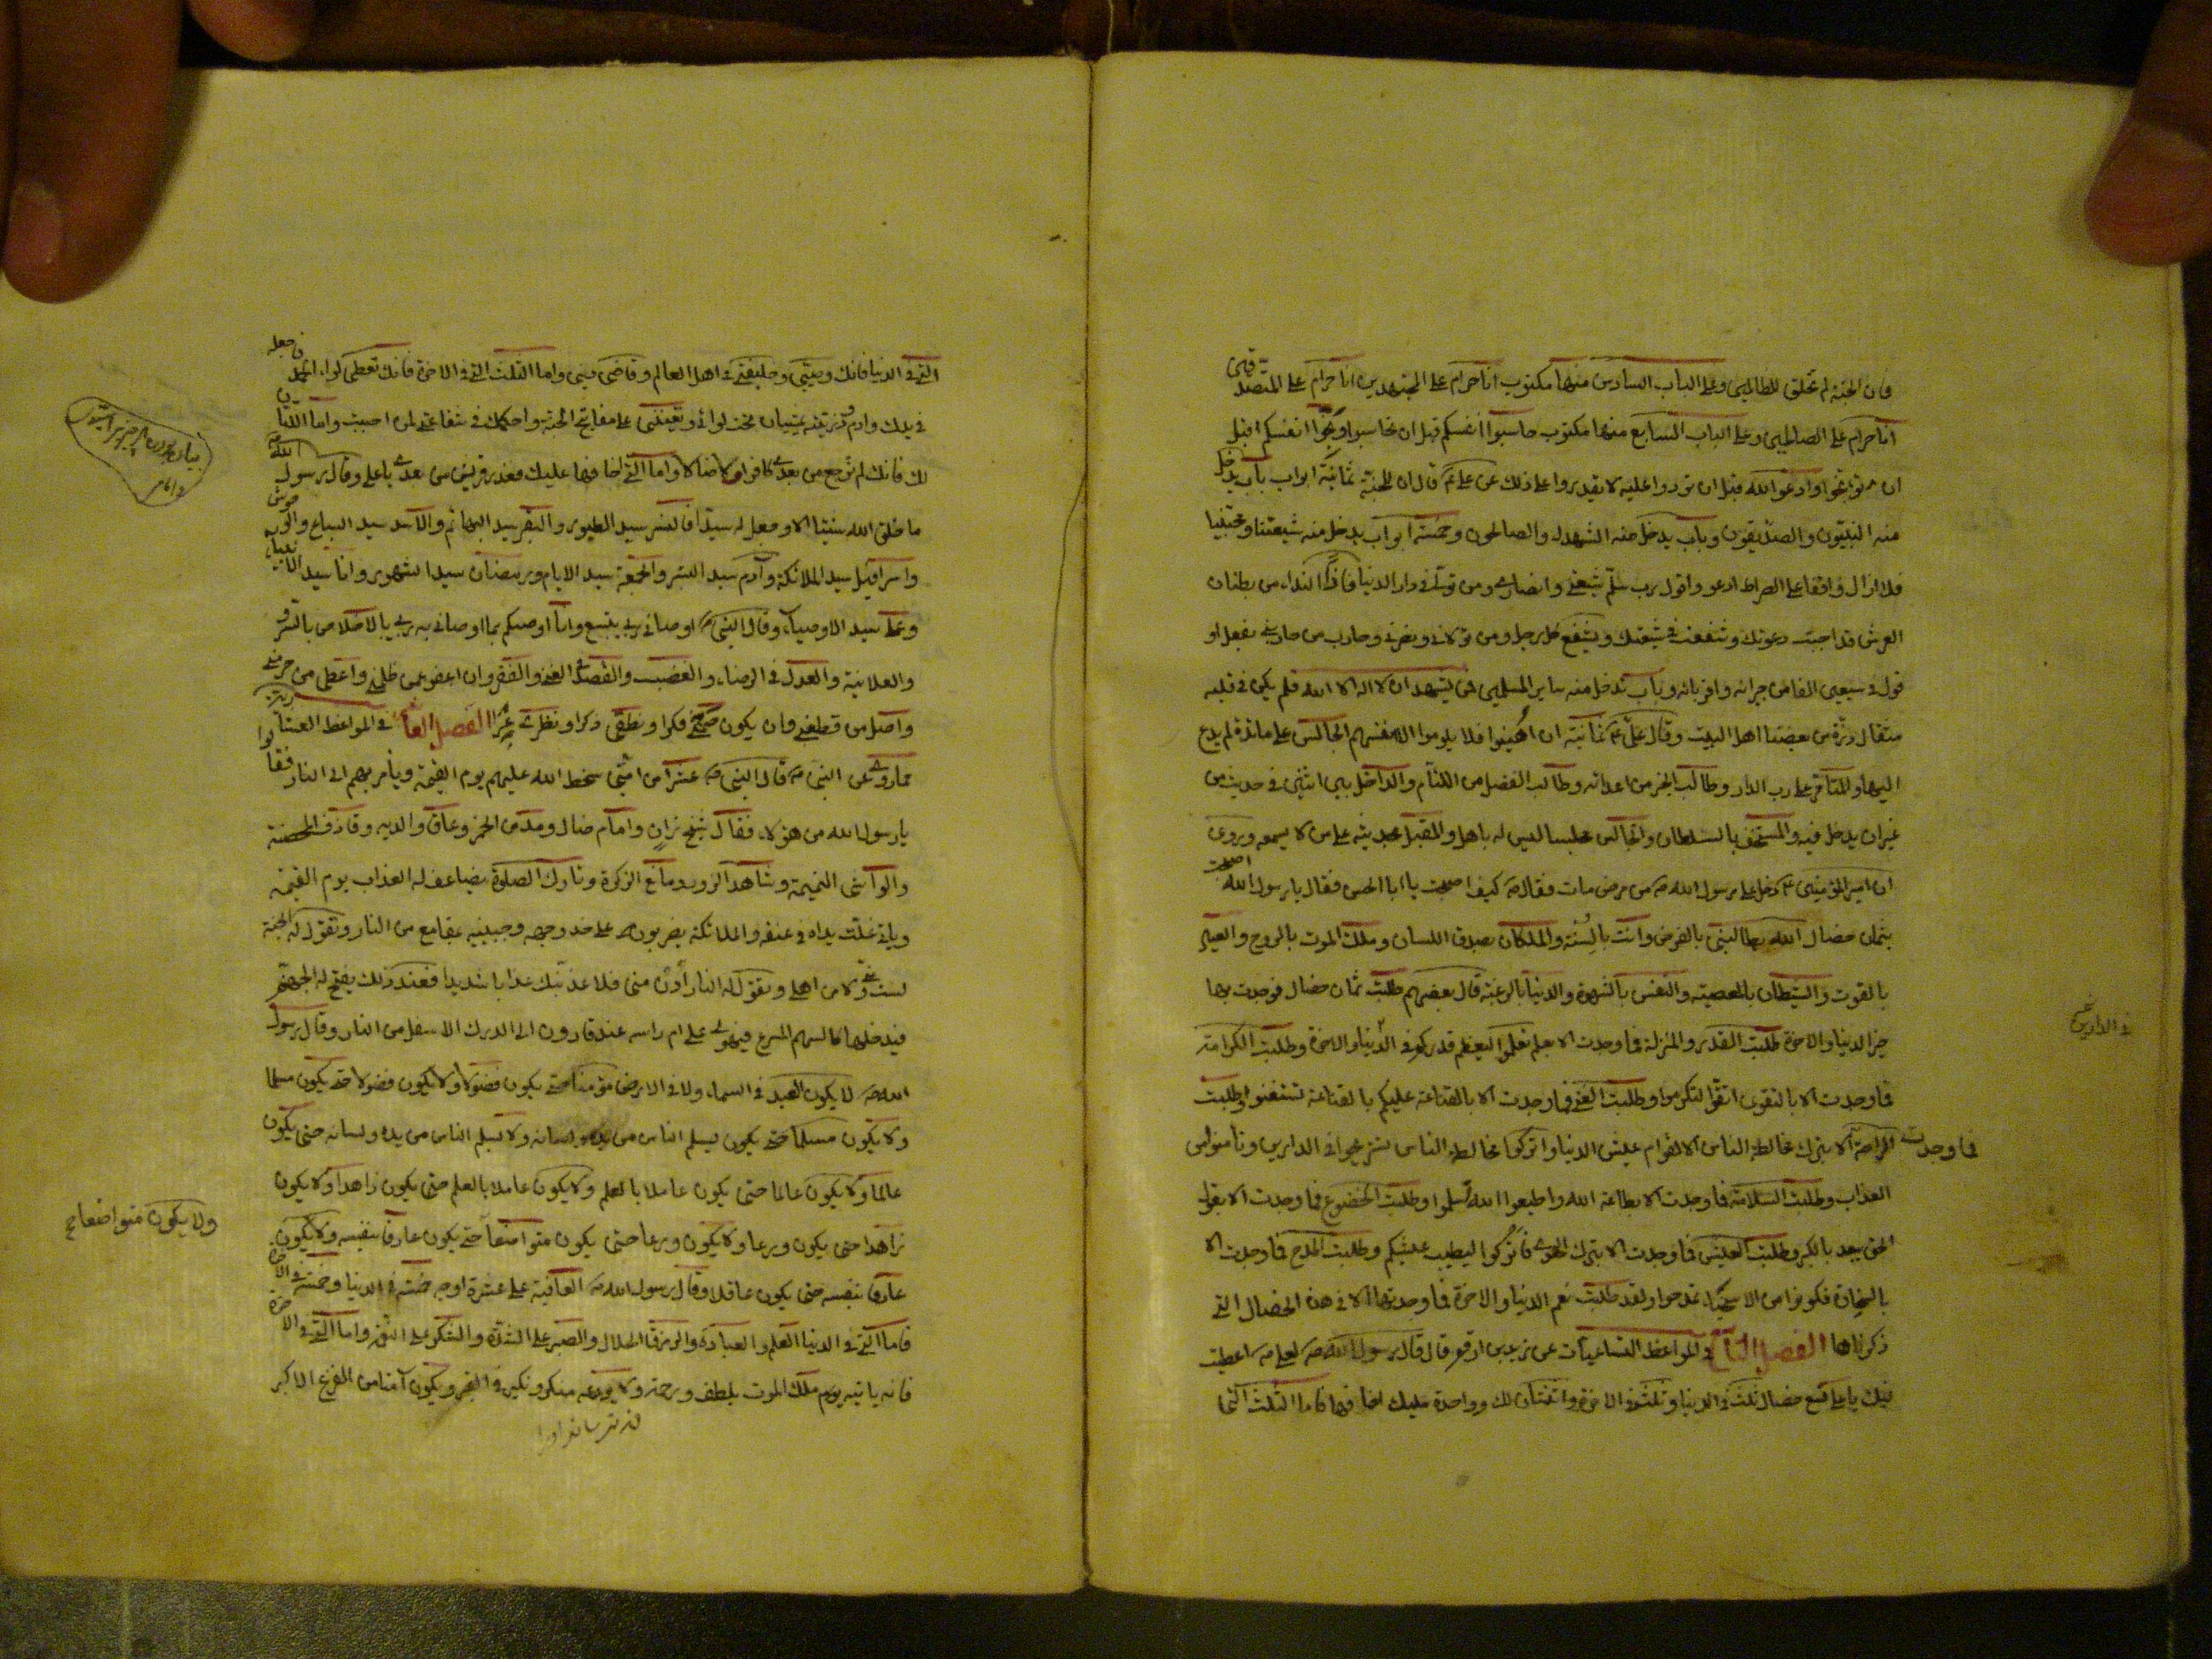 فان الجنة لم تخلق للظالمين وعلى الباب السادس منها مكتوب انا حرام على المجتهدين انا حرام على المتصدقين
انا حرام على الصالحين وعلى الباب السابع منها مكتوب حاسبوا انفسكم قبل ان تحاسبوا وبخوا انفسكم قبل
ان توبخوا وادعوا الله قبل ان تردوا عليه لا تقدروا على ذلك عن على ع قال ان للجنة ثمانية ابواب باب يدخل
منه النبيون والصديقون وباب يدخل منه الشهدا والصالحون وخمسة ابواب يدخل منه شيعتنا ومحبينا
فلا ازال واقفا على الصراط ادعو واقول رب سلم شيعتى وانصارى ومن تولى فى دار الدنيا فاذا النداء من بطنان
العرش قد اجبت دعوتك وشفعت فى شيعتك ويشفع كل رجل ومن تولانى ونصرنى وحارب من حاربنى بفعل او
قول فى سبعين الفا من جيرانه واقربائه وباب تدخل منه ساير المسلمين ممن يشهد ان لا اله الا الله فلم يكن فى قلبه
مثقال ذرة من بغضنا اهل البيت وقال على ع ثمانية ان اهينوا فلا يلوموا الا انفسهم الجالس على مائدة لم يدع
اليها والمتامر على رب الدار وطالب الخير من اعدائه وطالب الفضل من اللئام والداخل بين اثنين فى حديث من
غير ان يدخل فيه والمستخف بالسلطان والجالس مجلسا ليس له باهل والمقبل بحديثه على من لا يسمعه وروى
ان امير المؤمنين ع دخل على رسول الله ص من مرض مات فقال ص كيف اصبحت يا ابا الحسن فقال يا رسول الله اصبحت
بثمان خصال الله يطالبنى بالفرض وانت بالسنة والملكان بصدق اللسان وملك الموت بالروح والعيال
بالقوت والشيطان بالمعصية والنفس بالشهوة والدنيا بالرغبة قال بعضهم طلبت ثمان خصال فوجدت بها
خير الدنيا والاخرة طلبت القدر والمنزلة فما وجدت الا بعلم تعلموا ليعظم قدركم فى الدنيا والاخرة وطلبت الكرامة
فما وجدت الا بالتقوى اتقوا لتكرموا وطلبت الغنى فما وجدت الا بالقناعة عليكم بالقناعة تستغنوا وطلبت
الراحة فما وجدت الا بترك مخالطة الناس الا لقوام عيش الدنيا واتركوا مخالطة الناس تستريحوا فى الدارين وتامنوا من
العذاب وطلبت السلامة فما وجدت الا بطاعة الله واطيعوا الله تسلموا وطلبت الخضوع فما وجدت الا بقول
الحق بعد بالكبر وطلبت العيش فما وجدت الا بترك الهوى فاتركوا ليطيب عيشكم وطلبت المدح فما وجدت الا
بالسخاوة فكونوا من الاسخياء تمدحوا ولقد طلبت نعم الدنيا والاخرة فما وجدتها الا فى هذه الخصال التى
ذكرناها الفصل التا فى المواعظ التساعيات عن زيد بن ارقم قال قال رسول الله ص لعلى ص اعطيت
فيك يا على تسع خصال ثلث فى الدنيا وثلث فى الاخرة واثنتان لك وواحدة عليك اخافها فاما الثلث التى
فى الدارين
التى فى الدنيا فانك وصيتى وخليفتى فى اهل العالم وقاضى دينى واما الثلث التى فى الاخرة فانك تعطى لواء الحمد فاجعله
فى يدك وادم وذريته يمشيان تحت لوائى وتعيننى على مفاتح الجنة واحكمك فى شفاعتى لمن احببت واما اللتان
لك فانك لم ترجع من بعدى كافرا ولا ضالا واما التى اخافها عليك فغدر قريش من بعدى يا على وقال رسول الله
ما خلق الله شيئا الا وجعل له سيدا فالنسر سيد الطيور والبقر سيد البهائم والاسد سيد السباع والوحوش
واسرافيل سيد الملائكة وآدم سيد البشر والجمعة سيد الايام ورمضان سيد الشهور وانا سيد الانبياء
وعلى سيد الاوصياء وقال النبى ص اوصانى ربى بتسع وانا اوصيكم بما اوصانى به ربى بالاخلاص بالسر
والعلانية والعدل فى الرضاء والغضب والقصد فى الغنى والفقر وان اعفو عمن ظلمنى واعطى من حرمنى
واصل من قطعنى وان يكون صمتى فكرا ونطقى ذكرا ونظرى عبرا الفصل العا فى المواعظ العشارية
مما روى عن النبى ص قال النبى ص عشرا من امتى سخط الله عليهم يوم القيمة ويأمر بهم الى النار فقالوا
يا رسول الله من هؤلاء فقال شيخ زان وامام ضال ومدمن الخمر وعاق والديه وقاذف المحصنة
والواشى النميمة وشاهد الزور ومانع الزكوة وتارك الصلوة يضاعف له العذاب يوم القيمة
وياتى غلت يداه فى عنقه والملائكة يضربون على خد وجهه وجبينه بمقامع من النار وتقول له الجنة
لست منى ولا من اهلى وتقول له النار أدن منى فلاعذبنك عذابا شديدا فعند ذلك يفتح له الجهنم
فيدخلها كالسهم المسرع فيهوى على ام راسه عند قارون الى الدرك الاسفل من النار وقال رسول
الله ص لا يكون العبد فى السماء ولا فى الارض مؤمنا حتى يكون فضولا ولا يكون فضولا حتى يكون مسلما
ولا يكون مسلما حتى يكون يسلم الناس من يده ولسانه ولا يسلم الناس من يده ولسانه حتى يكون
عالما ولا يكون عالما حتى يكون عاملا بالعلم ولا يكون عاملا بالعلم حتى يكون زاهدا ولا يكون
زاهدا حتى يكون ورعا ولا يكون ورعا حتى يكون متواضعا حتى يكون عارفا بنفسه ولا يكون
عارفا بنفسه حتى يكون عاقلا وقال رسول الله ص العافية على عشرة اوجه خمسة فى الدنيا وخمسة فى الاخرة
فاما التى فى الدنيا العلم والعبادة والرزق الحلال والصبر على الشدة والشكر على النعمة واما التى فى الاخرة
فانه ياتيه يوم ملك الموت بلطف ورحمة ولا يروعه منكر ونكير فى القبر ويكون آمنا من الفزع الاكبر
ولا يكون متواضعا ح